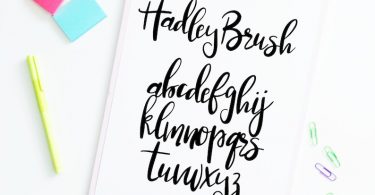 Hadley Brush
abcdefghij
klmnopqrs
tuvwxyz